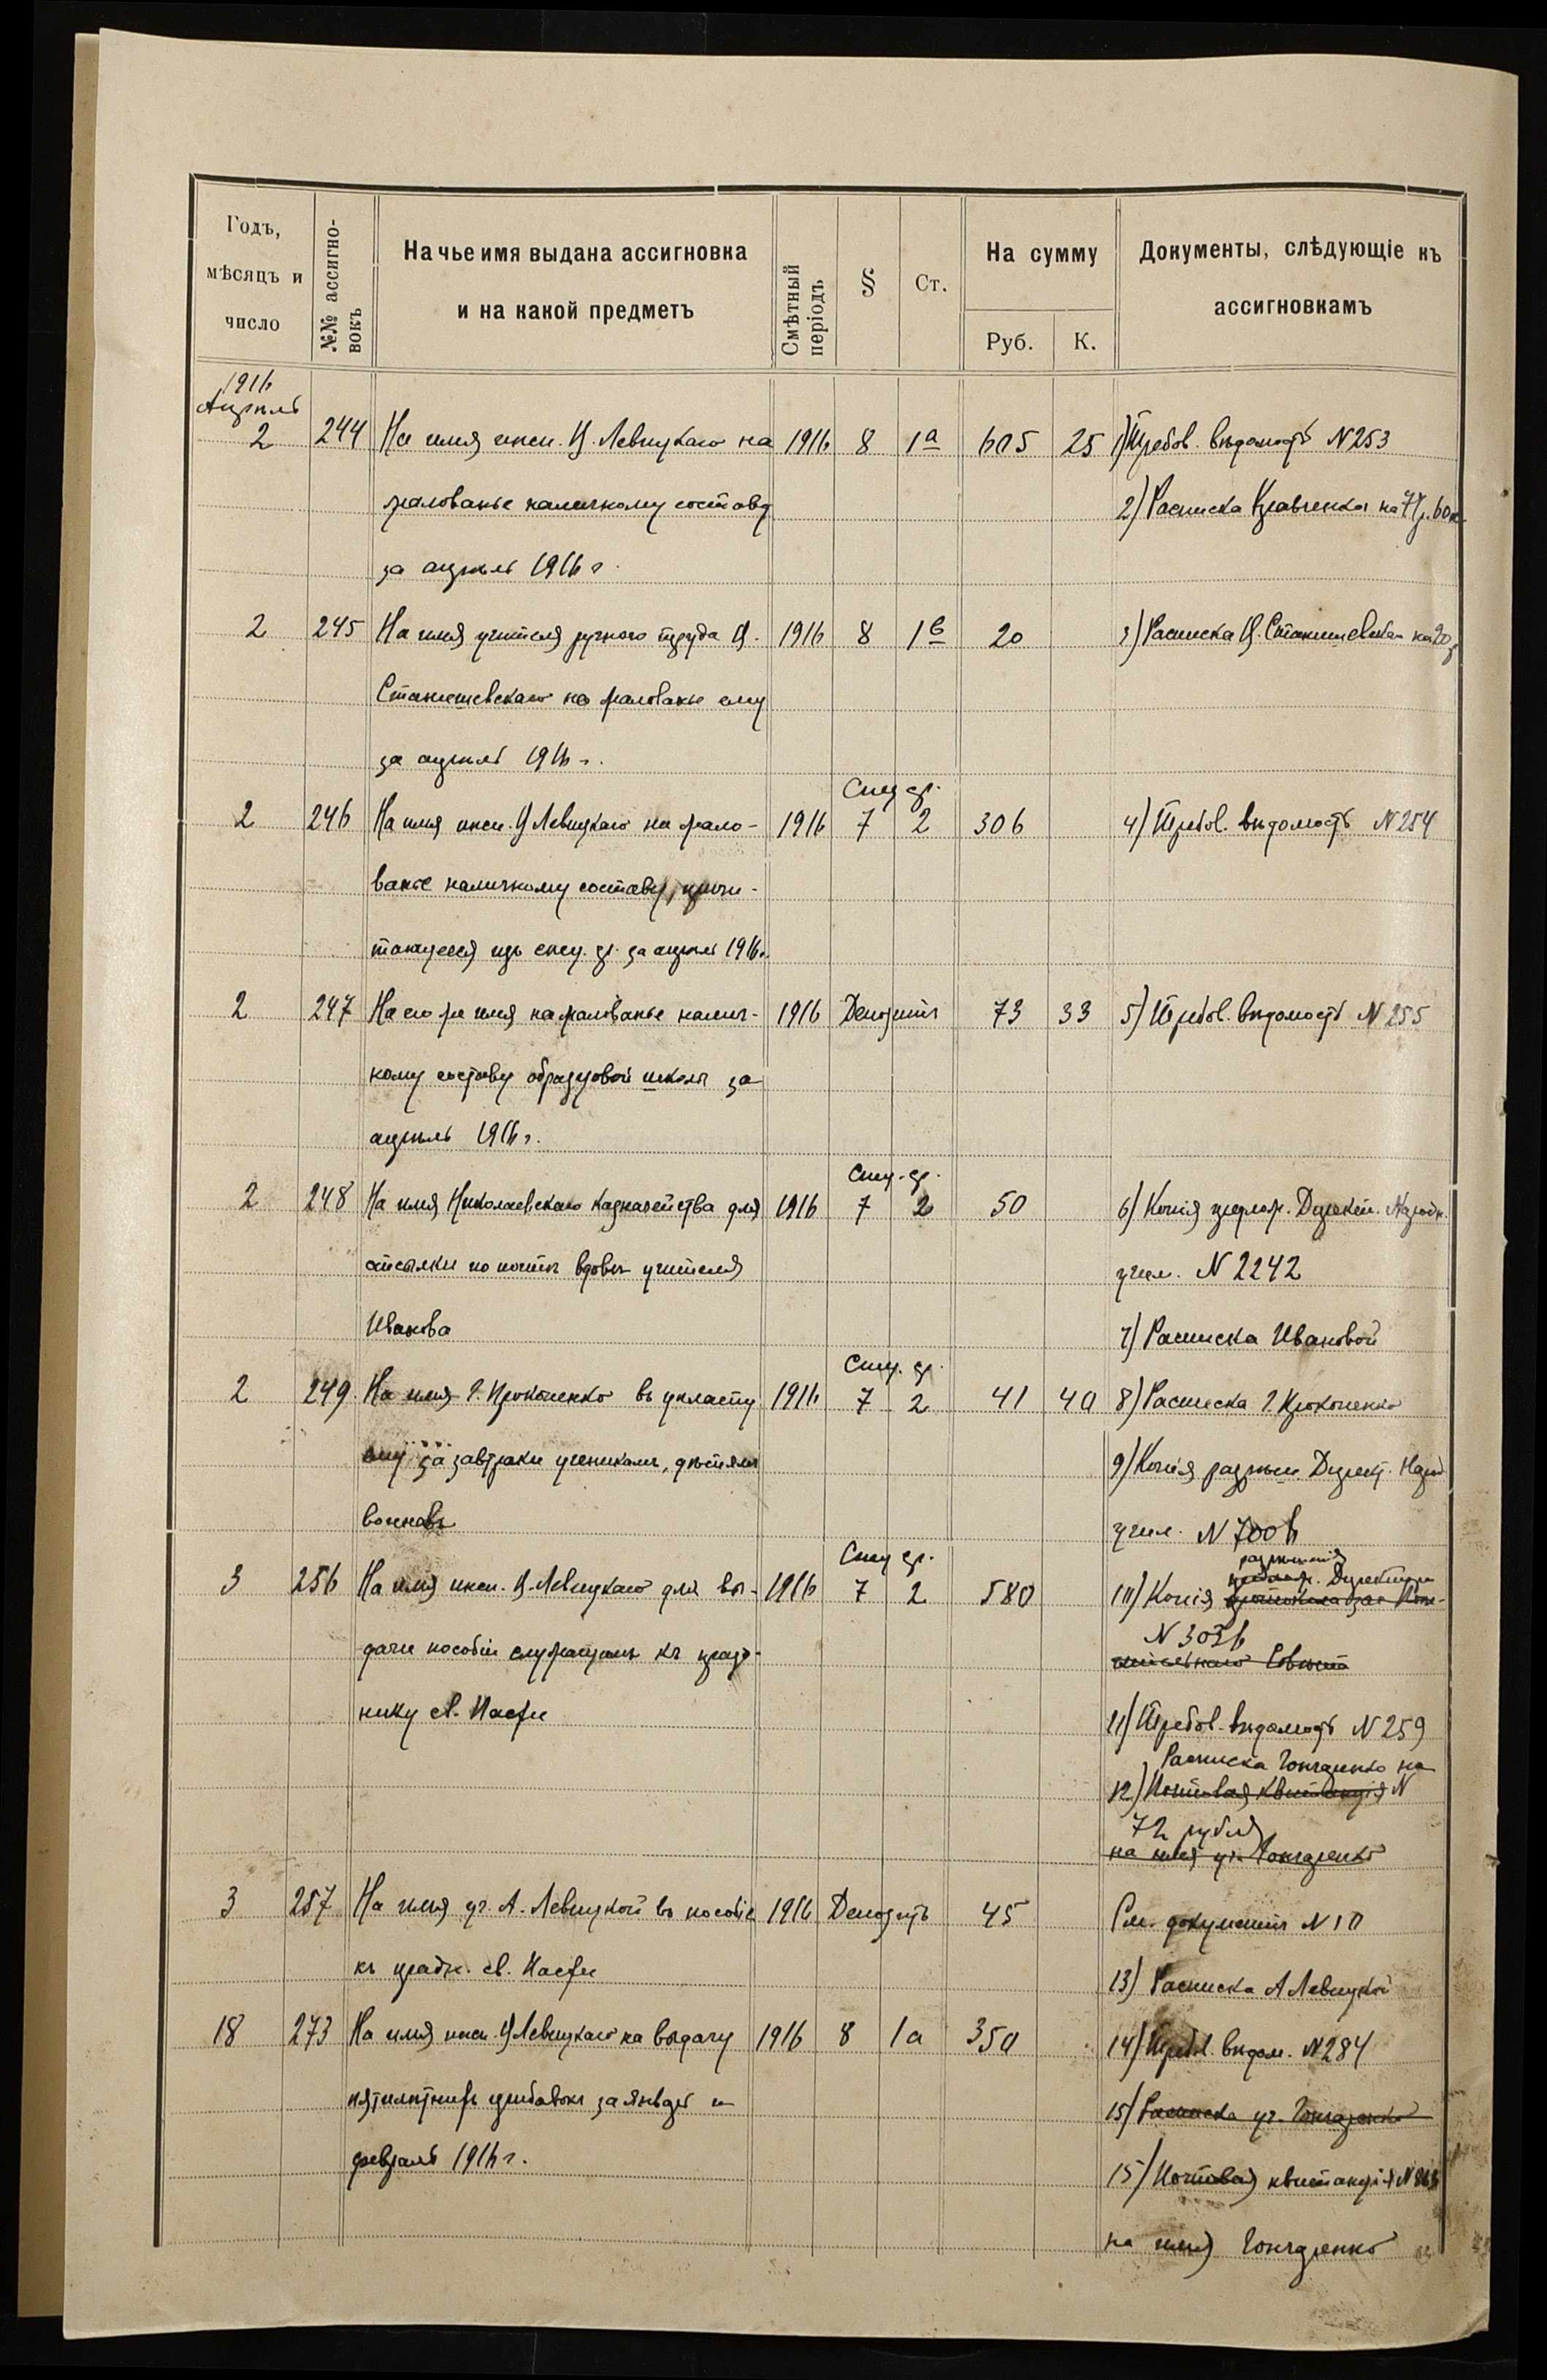 Годъ, мѣсяцъ и число
№№ ассигно-вокъ
На чье имя выдана ассигновка
и на какой предметъ
Смѣтный періодъ
§
Ст.
На сумму
Руб.
К.
Документы, слѣдующіе къ
ассигновкамъ
1916
Апрѣль
2 244 На имя инсп. Левицкаго на 1916 8 1а 605 25 1) Требов. вѣдомость N 253
жалованье наличному составу 2) Расписка Кравченко на 60к.
за апрѣль 1916 г.
2 245 На имя учителя ручного труда 1916 8 1 20 3) Расписка на 20р
Станишевскаго на жалованье ему
за апрѣль 1916 г.
Спец ср.
2 246 На имя инсп. Левицкаго на жало- 1916 7 2 306 4) Требов. вѣдомость N 254
ванье наличному составу, причи-
тающееся изъ спец. ср. за апрѣль 1916г.
2 247 На его же имя на жалованье налич- 1916 Депозитъ 73 33 5) Требов. вѣдомость N 255
ному составу образцовой школы за
апрѣль 1916 г.
Спец. ср.
2 248 На имя Николаевскаго Казначейства для 1916 7 2 50 6) Копія предлож. Дирекц. Народн.
отсылки по почтѣ вдовѣ учителя учил. N 2242
Иванова 7) Расписка Ивановой
Спец. ср.
2 249 На имя Г. Прокопенко въ уплату 1916 7 2 41 40 8) Расписка Г. Прокопенко
ему за завтраки ученикамъ, дѣтямъ 9) Копія разрѣш. Директ. Народ
воиновъ учил. N 7006
Спец ср. разрѣшенія
3 256 На имя инсп. Левицкаго для вы- 1916 7 2 580 10) Копія Дирекціи
N 3036
дачи пособія служащимъ къ празд-
нику св. Пасхи 11) Требов. вѣдомость N 259
Расписка Гончаренко на
12) Почтовая квитанція N
72 рубля
на имя уч. Гончаренко
3 257 На имя уч. А. Левицкой въ пособіе 1916 Депозитъ 45 См. документъ N 10
къ праздн. св. Пасхи 13) Расписка А Левицкой
18 273 На имя инсп. Левицкаго на выдачу 1916 8 1а 350 14) Требов. вѣдом. N 284
пятилѣтнихъ прибавокъ за январь и 15) Расписка уч. Гончаренко
февраль 1916 г. 15) Почтовая квитанція N
на имя Гончаренко